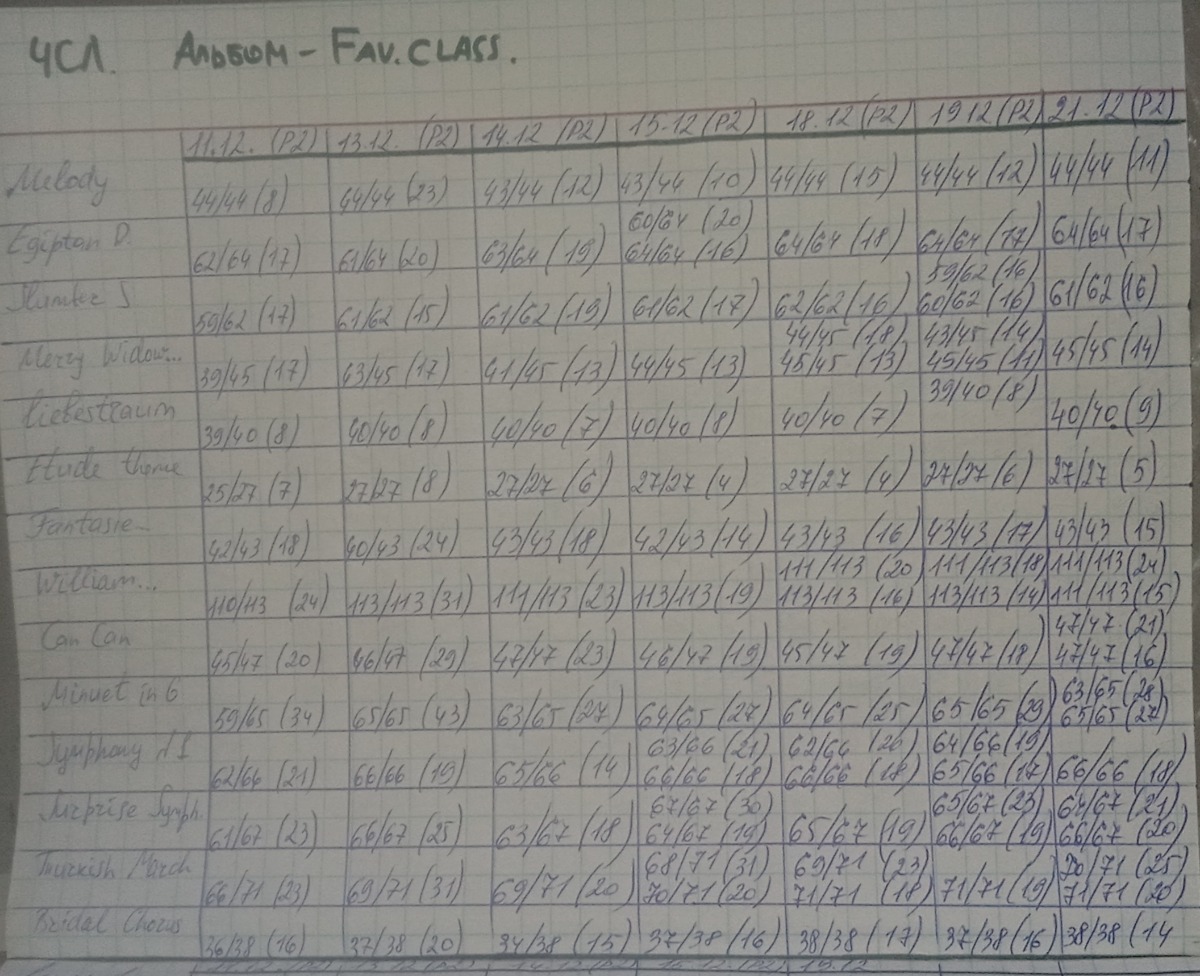 ЧСЛ. Альбом - FAV. CLASS.
11.12. (P2) 13.12. (P2) 14.12 (P2) 15.12 (P2) 18.12 (P2) 19.12 (P2) 21.12 (P2)
Melody 44/44 (8) 44/44 (23) 43/44 (12) 43/44 (10) 44/44 (15) 44/44 (12) 44/44 (11)
60/64 (20)
Egiptan D. 62/64 (17) 61/64 (20) 63/64 (19) 64/64 (16) 64/64 (18) 64/64 (17) 64/64 (17)
59/62 (16)
Slumber S 59/62 (17) 61/62 (15) 61/62 (19) 61/62 (17) 62/62 (16) 60/62 (16) 61/62 (16)
44/45 (18) 43/45 (14)
Merry Widow... 39/45 (17) 43/45 (17) 41/45 (13) 44/45 (13) 45/45 (13) 45/45 (11) 45/45 (14)
39/40 (8)
Liebestraum 39/40 (8) 40/40 (8) 40/40 (7) 40/40 (8) 40/40 (7) 40/40 (9)
Etude theme 25/27 (7) 27/27 (8) 27/27 (6) 27/27 (4) 27/27 (4) 27/27 (6) 27/27 (5)
Fantasie- 42/43 (18) 40/43 (24) 43/43 (18) 42/43 (14) 43/43 (16) 43/43 (17) 43/43 (15)
111/113 (20) 111/113 (18) 111/113 (24)
William... 110/113 (24) 113/113 (31) 111/113 (23) 113/113 (19) 113/113 (16) 113/113 (14) 111/113 (15)
47/47 (21)
Can Can 45/47 (20) 46/47 (29) 47/47 (23) 46/47 (19) 45/47 (19) 47/47 (18) 47/47 (16)
63/65 (28)
Minuet in G 59/65 (34) 65/65 (43) 63/65 (27) 64/65 (27) 64/65 (25) 65/65 (29) 65/65 (27)
63/66 (21) 62/66 (20) 64/66 (19)
Symphony N1 62/66 (21) 66/66 (19) 65/66 (14) 66/66 (18) 66/66 (18) 65/66 (17) 66/66 (18)
67/67 (30) 65/67 (23) 64/67 (21)
Surprise Symph. 61/67 (23) 66/67 (25) 63/67 (18) 64/67 (19) 65/67 (19) 66/67 (19) 66/67 (20)
68/71 (31) 69/71 (23) 70/71 (25)
Thurkish March 66/71 (23) 69/71 (31) 69/71 (20) 70/71 (20) 71/71 (18) 71/71 (19) 71/71 (20)
Bridal Chorus 36/38 (16) 37/38 (20) 34/38 (15) 37/38 (16) 38/38 (17) 37/38 (16) 38/38 (14